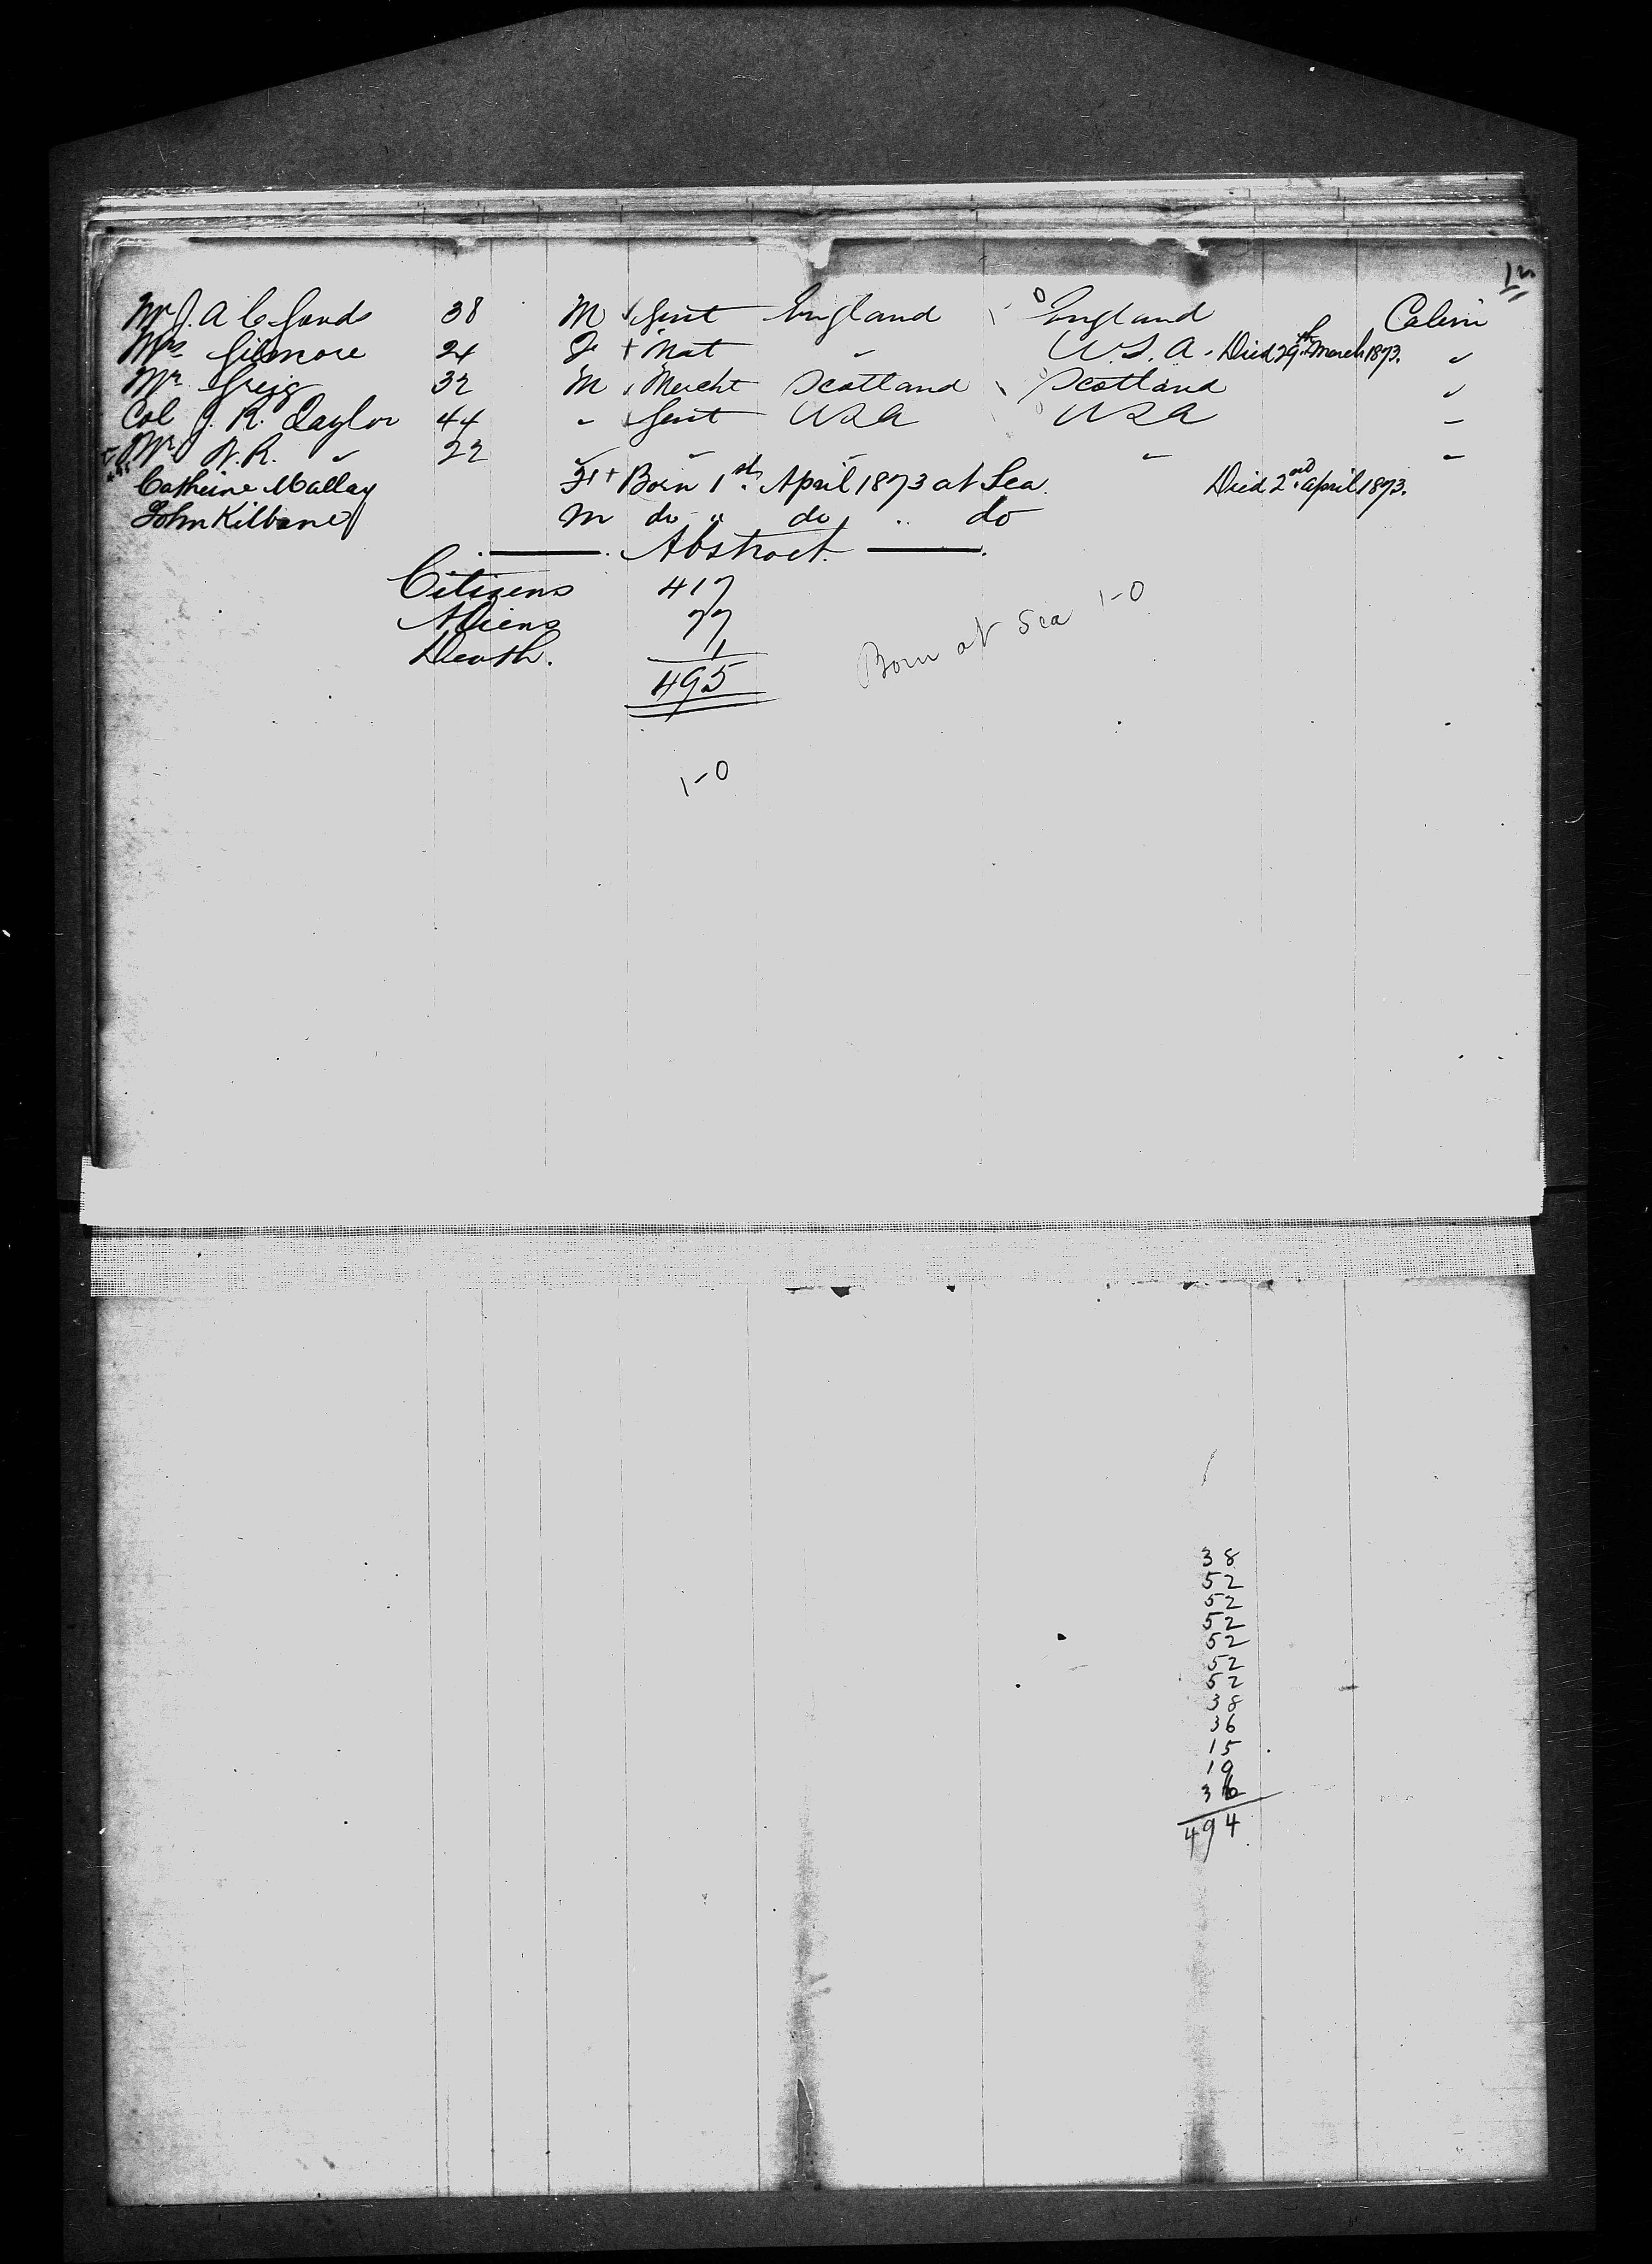 12
Mr J. A. C. Sands 38 M Gent England England Cabin
Mrs Gilmore 24 F + Nat " U.S.A. Died 29th March 1873. "
Mr Greig 32 M Mercht Scotland Scotland "
Col J. R. Taylor 44 " Gent USA USA "
Mr W. R. " 22 " " " " "
Catherine Mallay F + Born 1st April 1873 at Sea. Died 2nd April 1873.
John Kilbane M do " do " do
Abstract.
Citizens 417
Aliens 77
Death. 1
495
Born at Sea 1-0
1-0
38
52
52
52
52
52
52
38
36
15
19
36
494